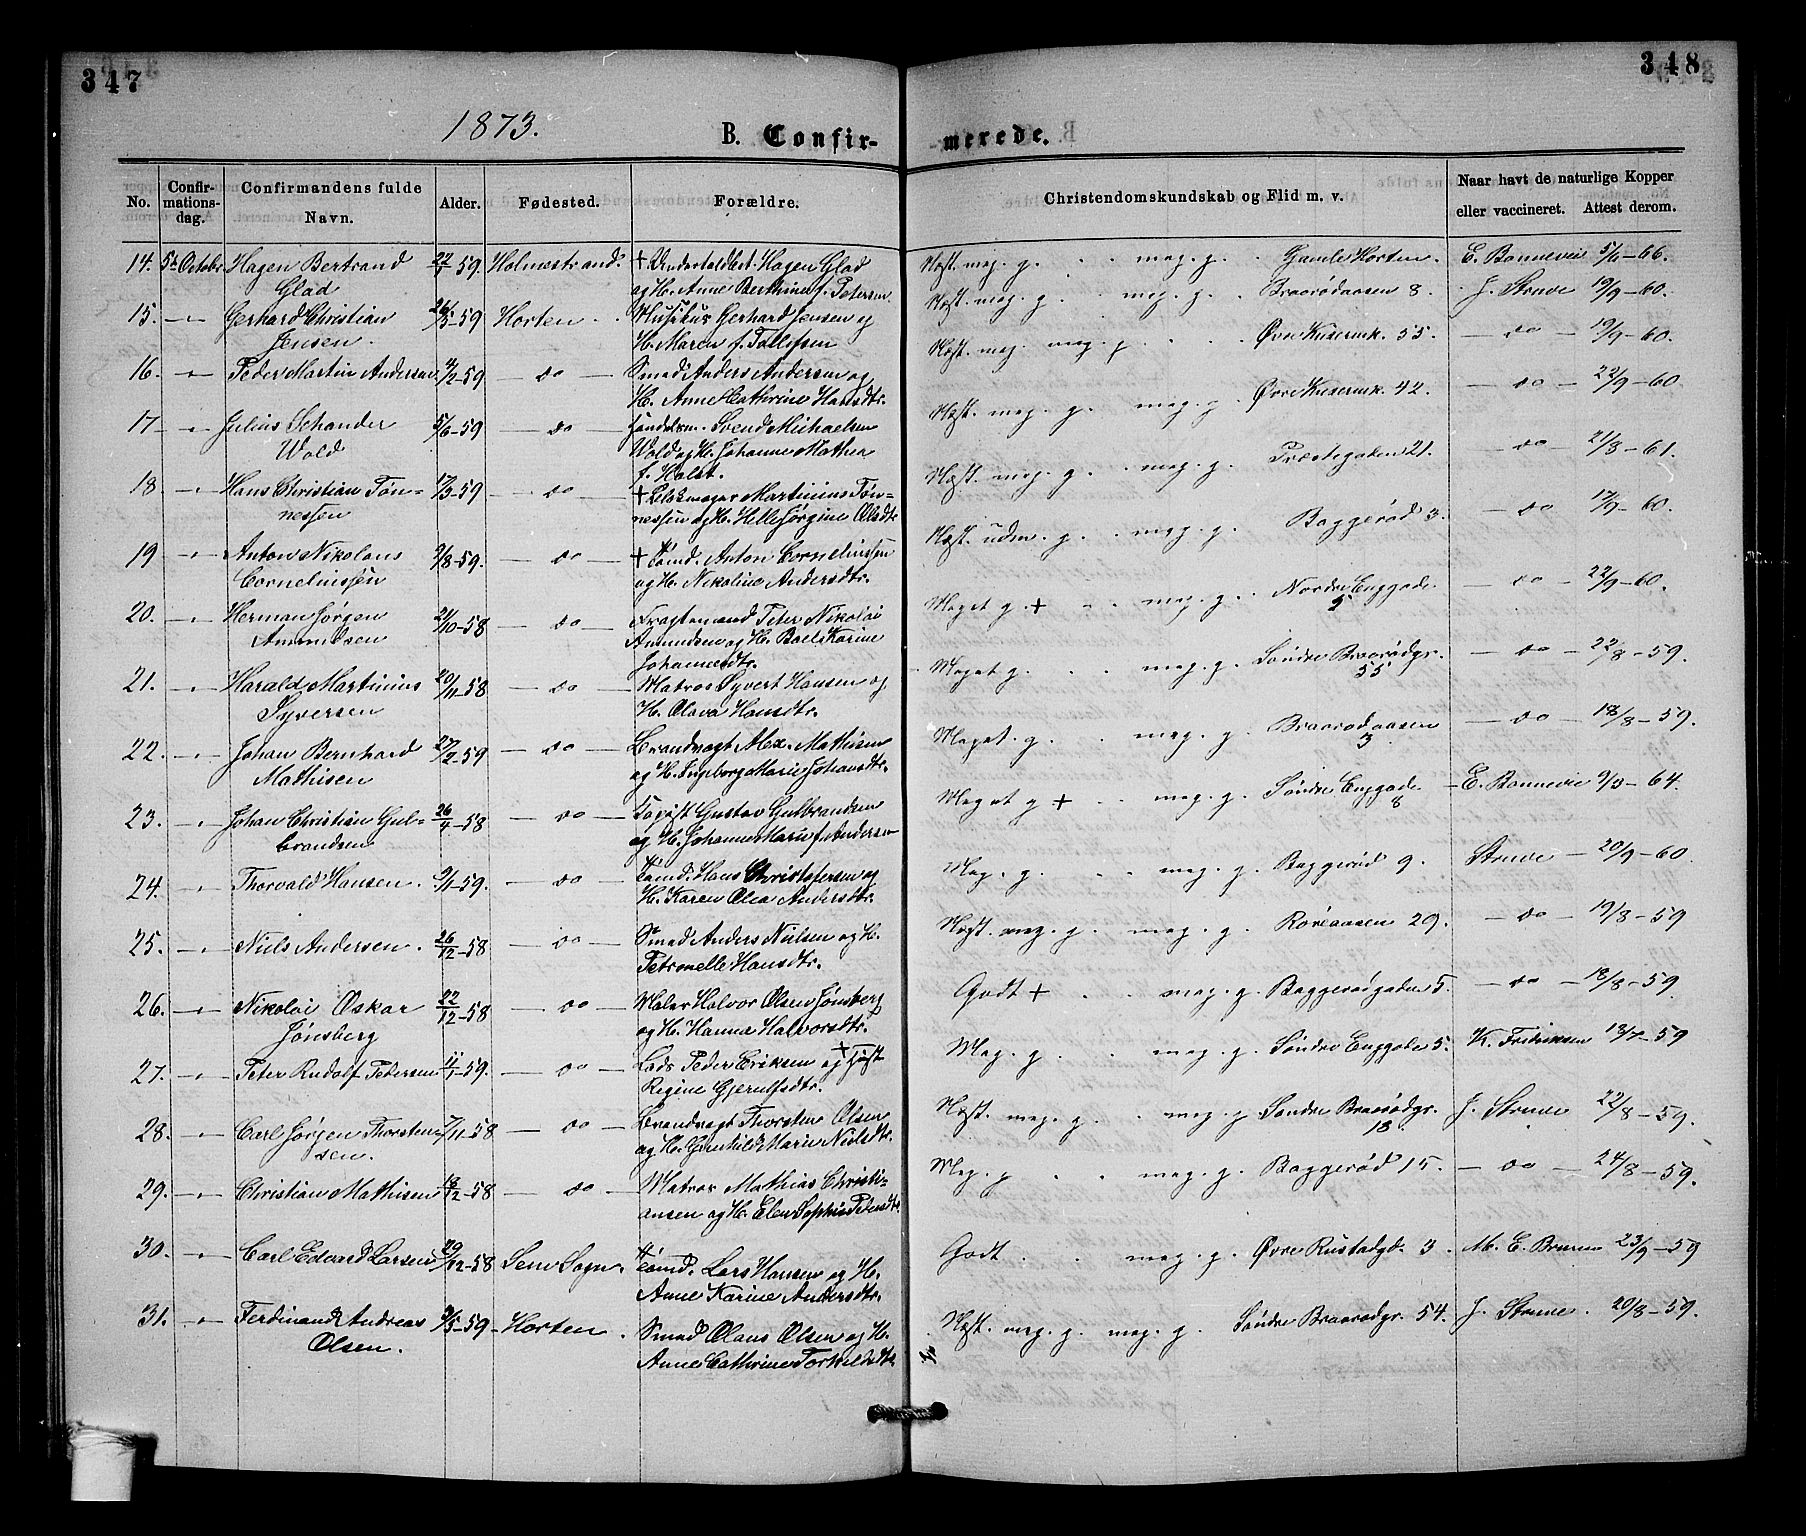 347
348
1873.
B. Confir-
merede.
No.
Confirmations-dag.
Confirmandens fulde Navn.
Alder.
Fødested.
Forældre.
Christendomskundskab og Flid m. v.
Naar havt de naturlige Kopper eller vaccineret. Attest derom.
14. 5t Octobr Hagen Bertrand 22/1-59 Holmestrand. + Underholdbet. Hagen Glad Mest. meg. g. meg. g. Gamle Horten. E. Bonnevie 5/6-66.
Glad og H. Anne Berthine f. Petersen
15. Gerhard Christian 26/3-59 Horten. Musikus Gerhard Jensen og Mest. meg. g. meg. g. Braarødaasen 8. J. Struve 19/9-60.
Jensen. H. Maren f. Tollefsen
16. Peder Martin Andersen 4/2-59 do Smed Anders Andersen og Mest. meg. meg. g. Øvre Keiserenk. 55. do 19/9-60.
H. Anne Cathrine Hansdtr.
17. Julius Schander 5/6-59 do Handelsm. Svend Michaelsen Mest. meg. g. meg. g. Øvre Keiserenk. 42. do 22/9-60
Wold Wold og H. Johanne Mathea
f. Holst.
18. Hans Christian Tøn- 17/3-59 do + Martinius Tøn- Mest. meg. g. meg. g. Præstegaden 21. do 21/8-61.
nessen nessen og H. Helle Jørgine Olsdtr.
19 Anton Nikolaus 9/8-59. do + Tømd. Anton Corneliussen Mest. udm. g. meg. g. Baggerød 3. do 17/9-60.
Corneliussen og H. Nikoline Andersdtr.
20. Herman Jørgen 21/10-58 do Fragtemand Peter Nikolai Meget g. + meg. g. Nordre Enggade 5 do 22/9-60.
Amundsen Amundsen og H. Boel Karine
Johannesdtr.
21. Harald Martinius 20/11-58 do Matros Syvert Hansen og Meget g. meg. g. Søndre Braarødgr. 55 do 22/8-59.
Syversen H. Olava Hansdtr.
22. Johan Bernhard 27/2-59 do Brandvagt Alex. Mathisen Meget g. meg. g. Braarødaasen 3 do 18/8-59.
Mathisen og H. Ingeborg Marie Johansdtr.
23. Johan Christian Gul- 26/4-58 do Gustav Gulbrandsen Meget g + meg. g. Søndre Enggade 8 E. Bonnevie 9/3-64.
brandsen og H. Johanne Marie f. Andersen
24. Thorvald Hansen. 9/1-59. do Tømd. Hans Christofersen og Meg. g. meg. g. Baggerød 9. Struve 20/9-60.
H. Karen Olea Andersdtr.
25. Niels Andersen. 26/12-58 do Smed Anders Nielsen og H. Mest. meg. g. meg. g. Roreaasen 29. do 19/8-59
Petronelle Hansdtr.
26. Nikolai Oskar 22/12-58 do Maler Halvor Olsen Jønsberg Godt + meg. g. Baggerødgaden 5. do 18/8-59.
Jønsberg og H. Hanna Halvorsdtr.
27. Peter Rudolf Pedersen 11/1-59. do Lods Peder Eriksen og + Meg. g. meg. g. Søndre Enggade 5. K. Fredriksen 13/7-59
Regine Gjerulfsdtr.
28. Carl Jørgen Thorsten- 7/11-58 do Brandvagt Thorsten Olsen Mest. meg. g. meg. g Søndre Braarødgr. 18 J. Struve 22/8-59.
sen. og H. Gunhild Marie Nielsdtr.
29. Christian Mathisen 18/12-58 do Matros Mathias Christi- Meg. g meg. g. Baggerød 15. do 24/8-59.
ansen og H. Elen Sophie Pedersdtr.
30. Carl Edvard Larsen 29/12-58 Sem Sogn. Tømd. Lars Hansen og H. Godt. meg. g. Øvre Rustadgd. 3. M. E. Bruun 23/9-59
Anne Karine Andersdtr.
31. Ferdinand Andreas 9/5-59 Horten. Smed Olaus Olsen og H. Mest. meg. g. meg. g. Søndre Braarødgr. 54. J. Struve. 20/8-59.
Olsen. Anne Cathrine Torkildsdtr.